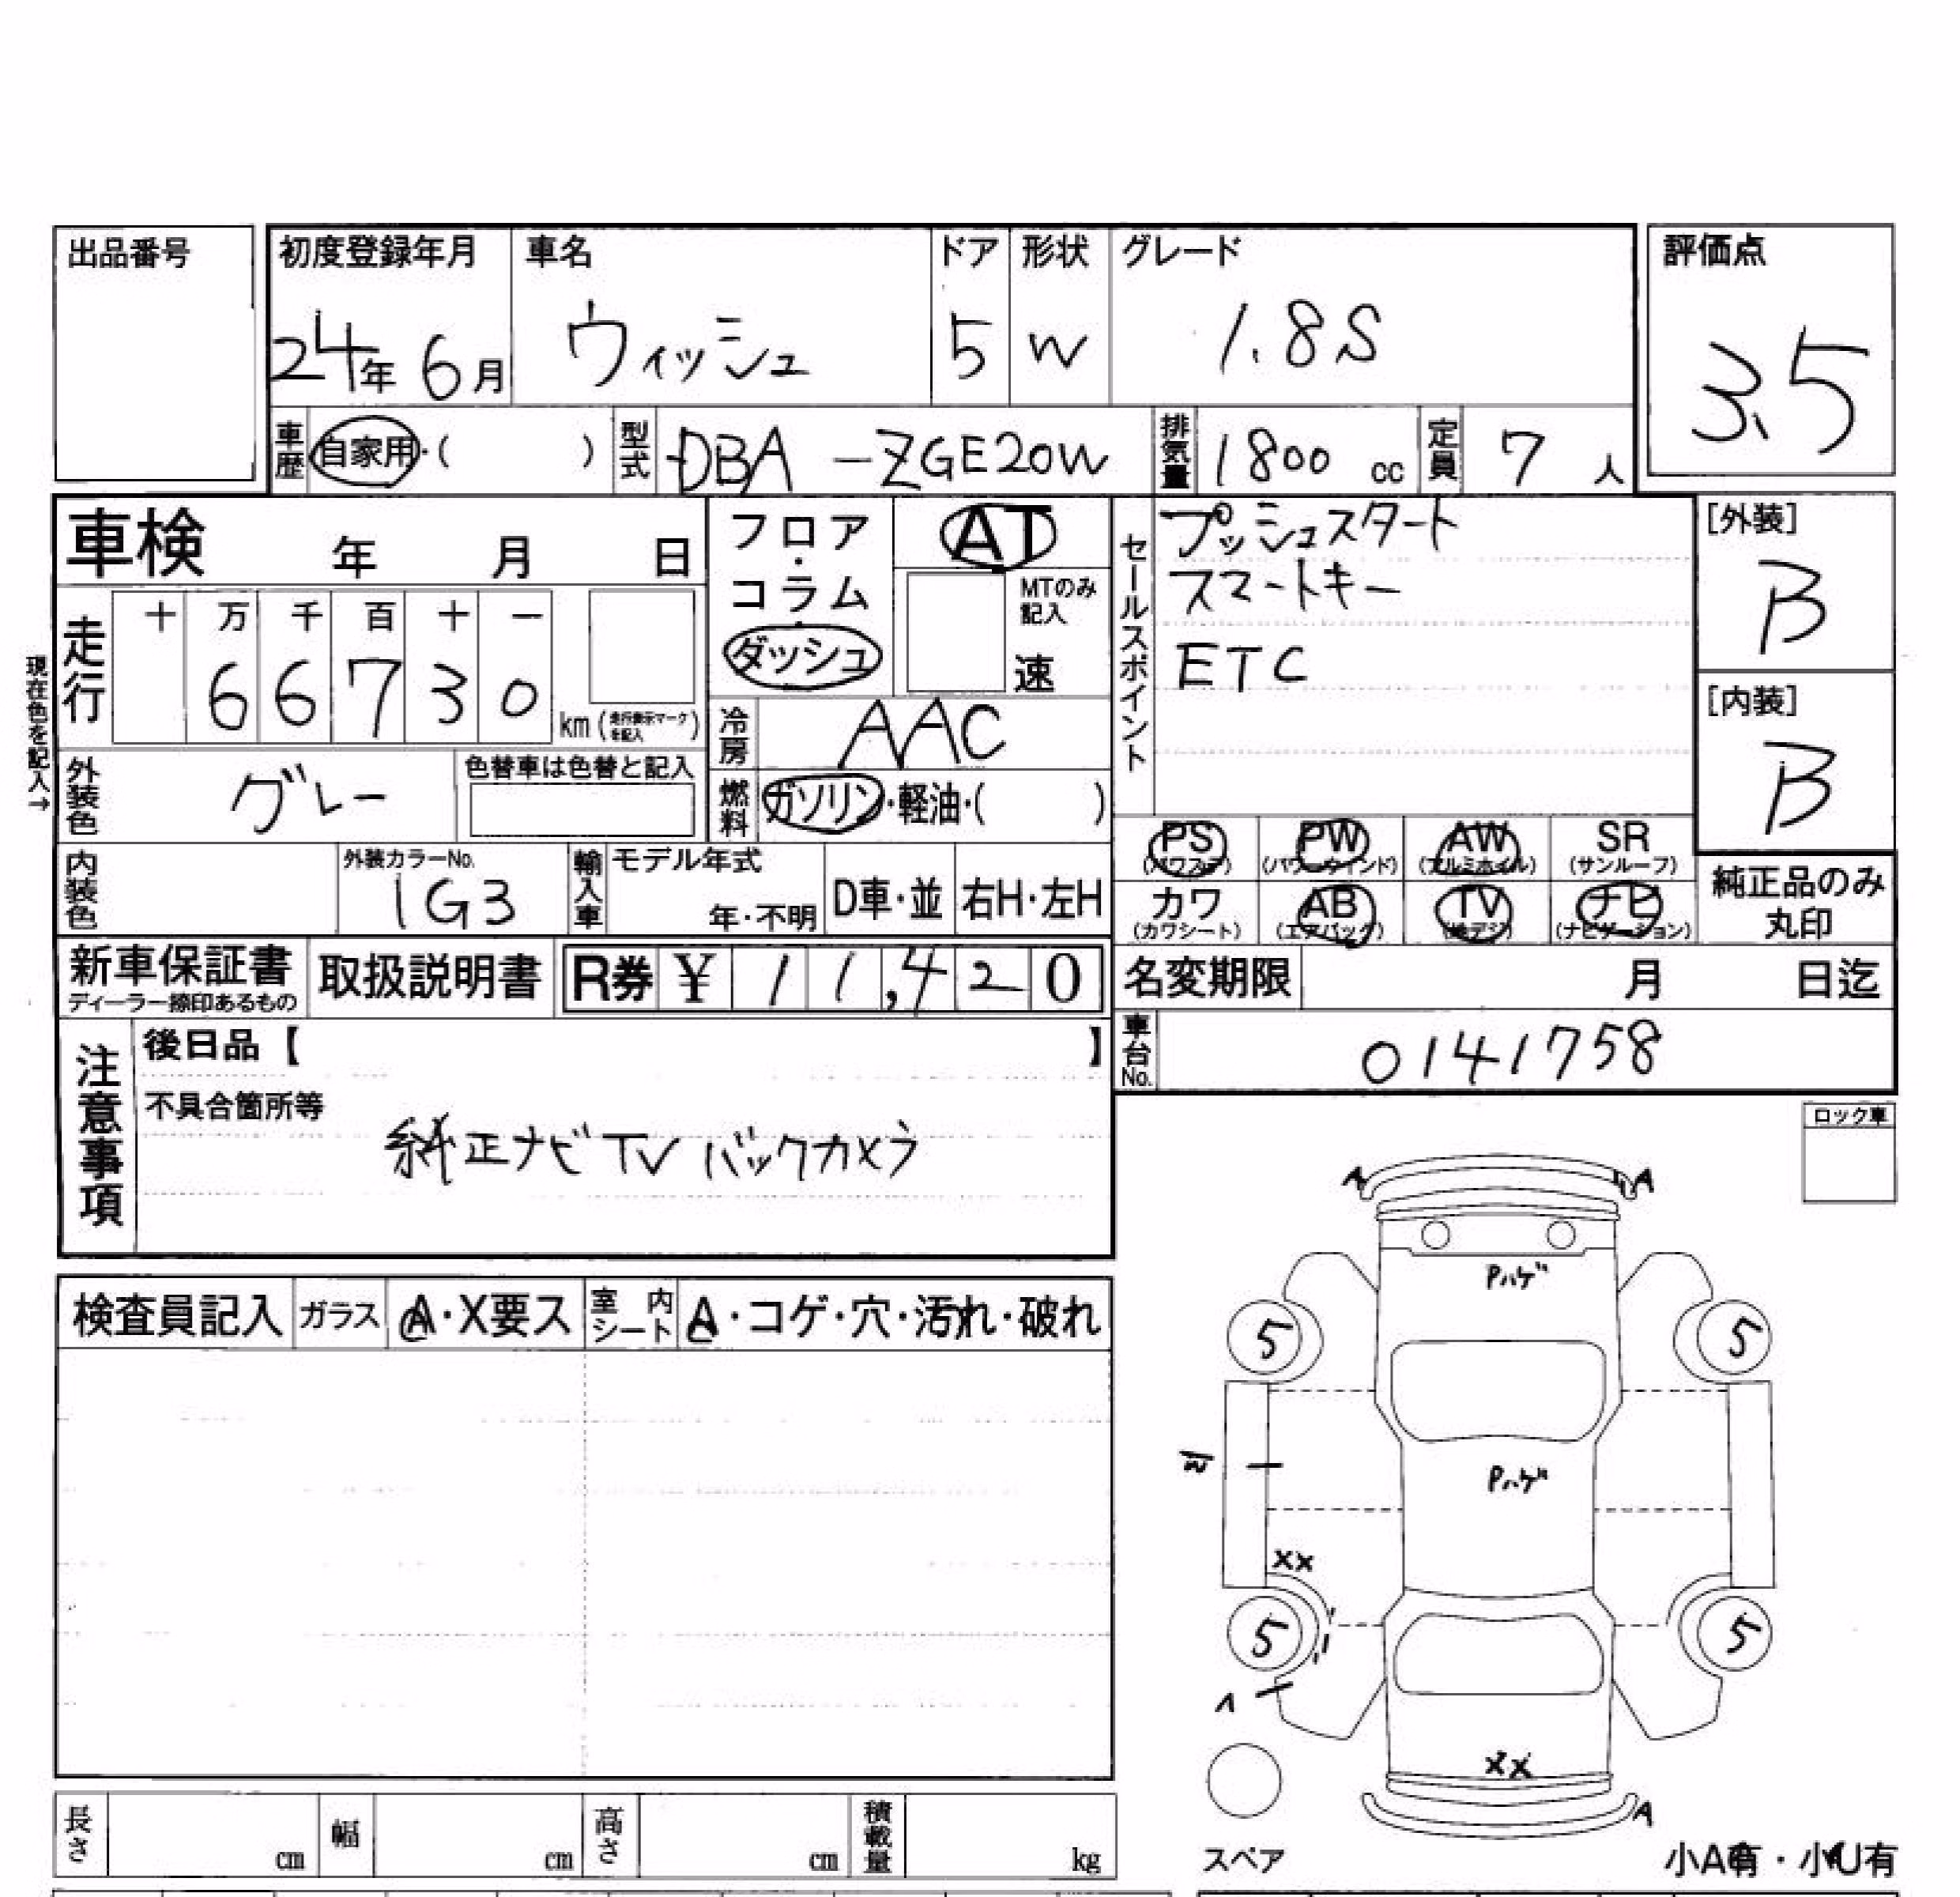 出品番号
初度登録年月 車名 ドア 形状 グレード 評価点
24年 6月 ウィッシュ 5 W 1.8S 3.5
車歴 自家用・( ) 型式 DBA -ZGE20W 排気量 1800 cc 定員 7 人
車検 年 月 日
フロア・コラム・ダッシュ AT
MTのみ記入 速
セールスポイント
プッシュスタート
スマートキー
ETC
[外装]
B
[内装]
B
現在色を記入→
走行 十 万 千 百 十 一
6 6 7 3 0 km (走行表示マークを記入)
冷房 AAC
外装色 グレー 色替車は色替と記入
燃料 ガソリン・軽油・( )
PS (パワステ) PW (パワーウインド) AW (アルミホイル) SR (サンルーフ)
カワ (カワシート) AB (エアバッグ) TV (地デジ) ナビ (ナビゲーション)
純正品のみ丸印
内装色 外装カラーNo. 1G3 輸入車 モデル年式 年・不明 D車・並 右H・左H
新車保証書 ディーラー捺印あるもの 取扱説明書 R券 ¥ 11,420
名変期限 月 日迄
車台No. 0141758
注意事項
後日品【 】
不具合箇所等
純正ナビTV バックカメラ
ロック車
検査員記入 ガラス A・X要ス 室内シート A・コゲ・穴・汚れ・破れ
A A
Pハゲ
5 5
Pハゲ
XX
5 5
XX
A
スペア
小A有・小U有
長さ cm 幅 cm 高さ cm 積載量 kg